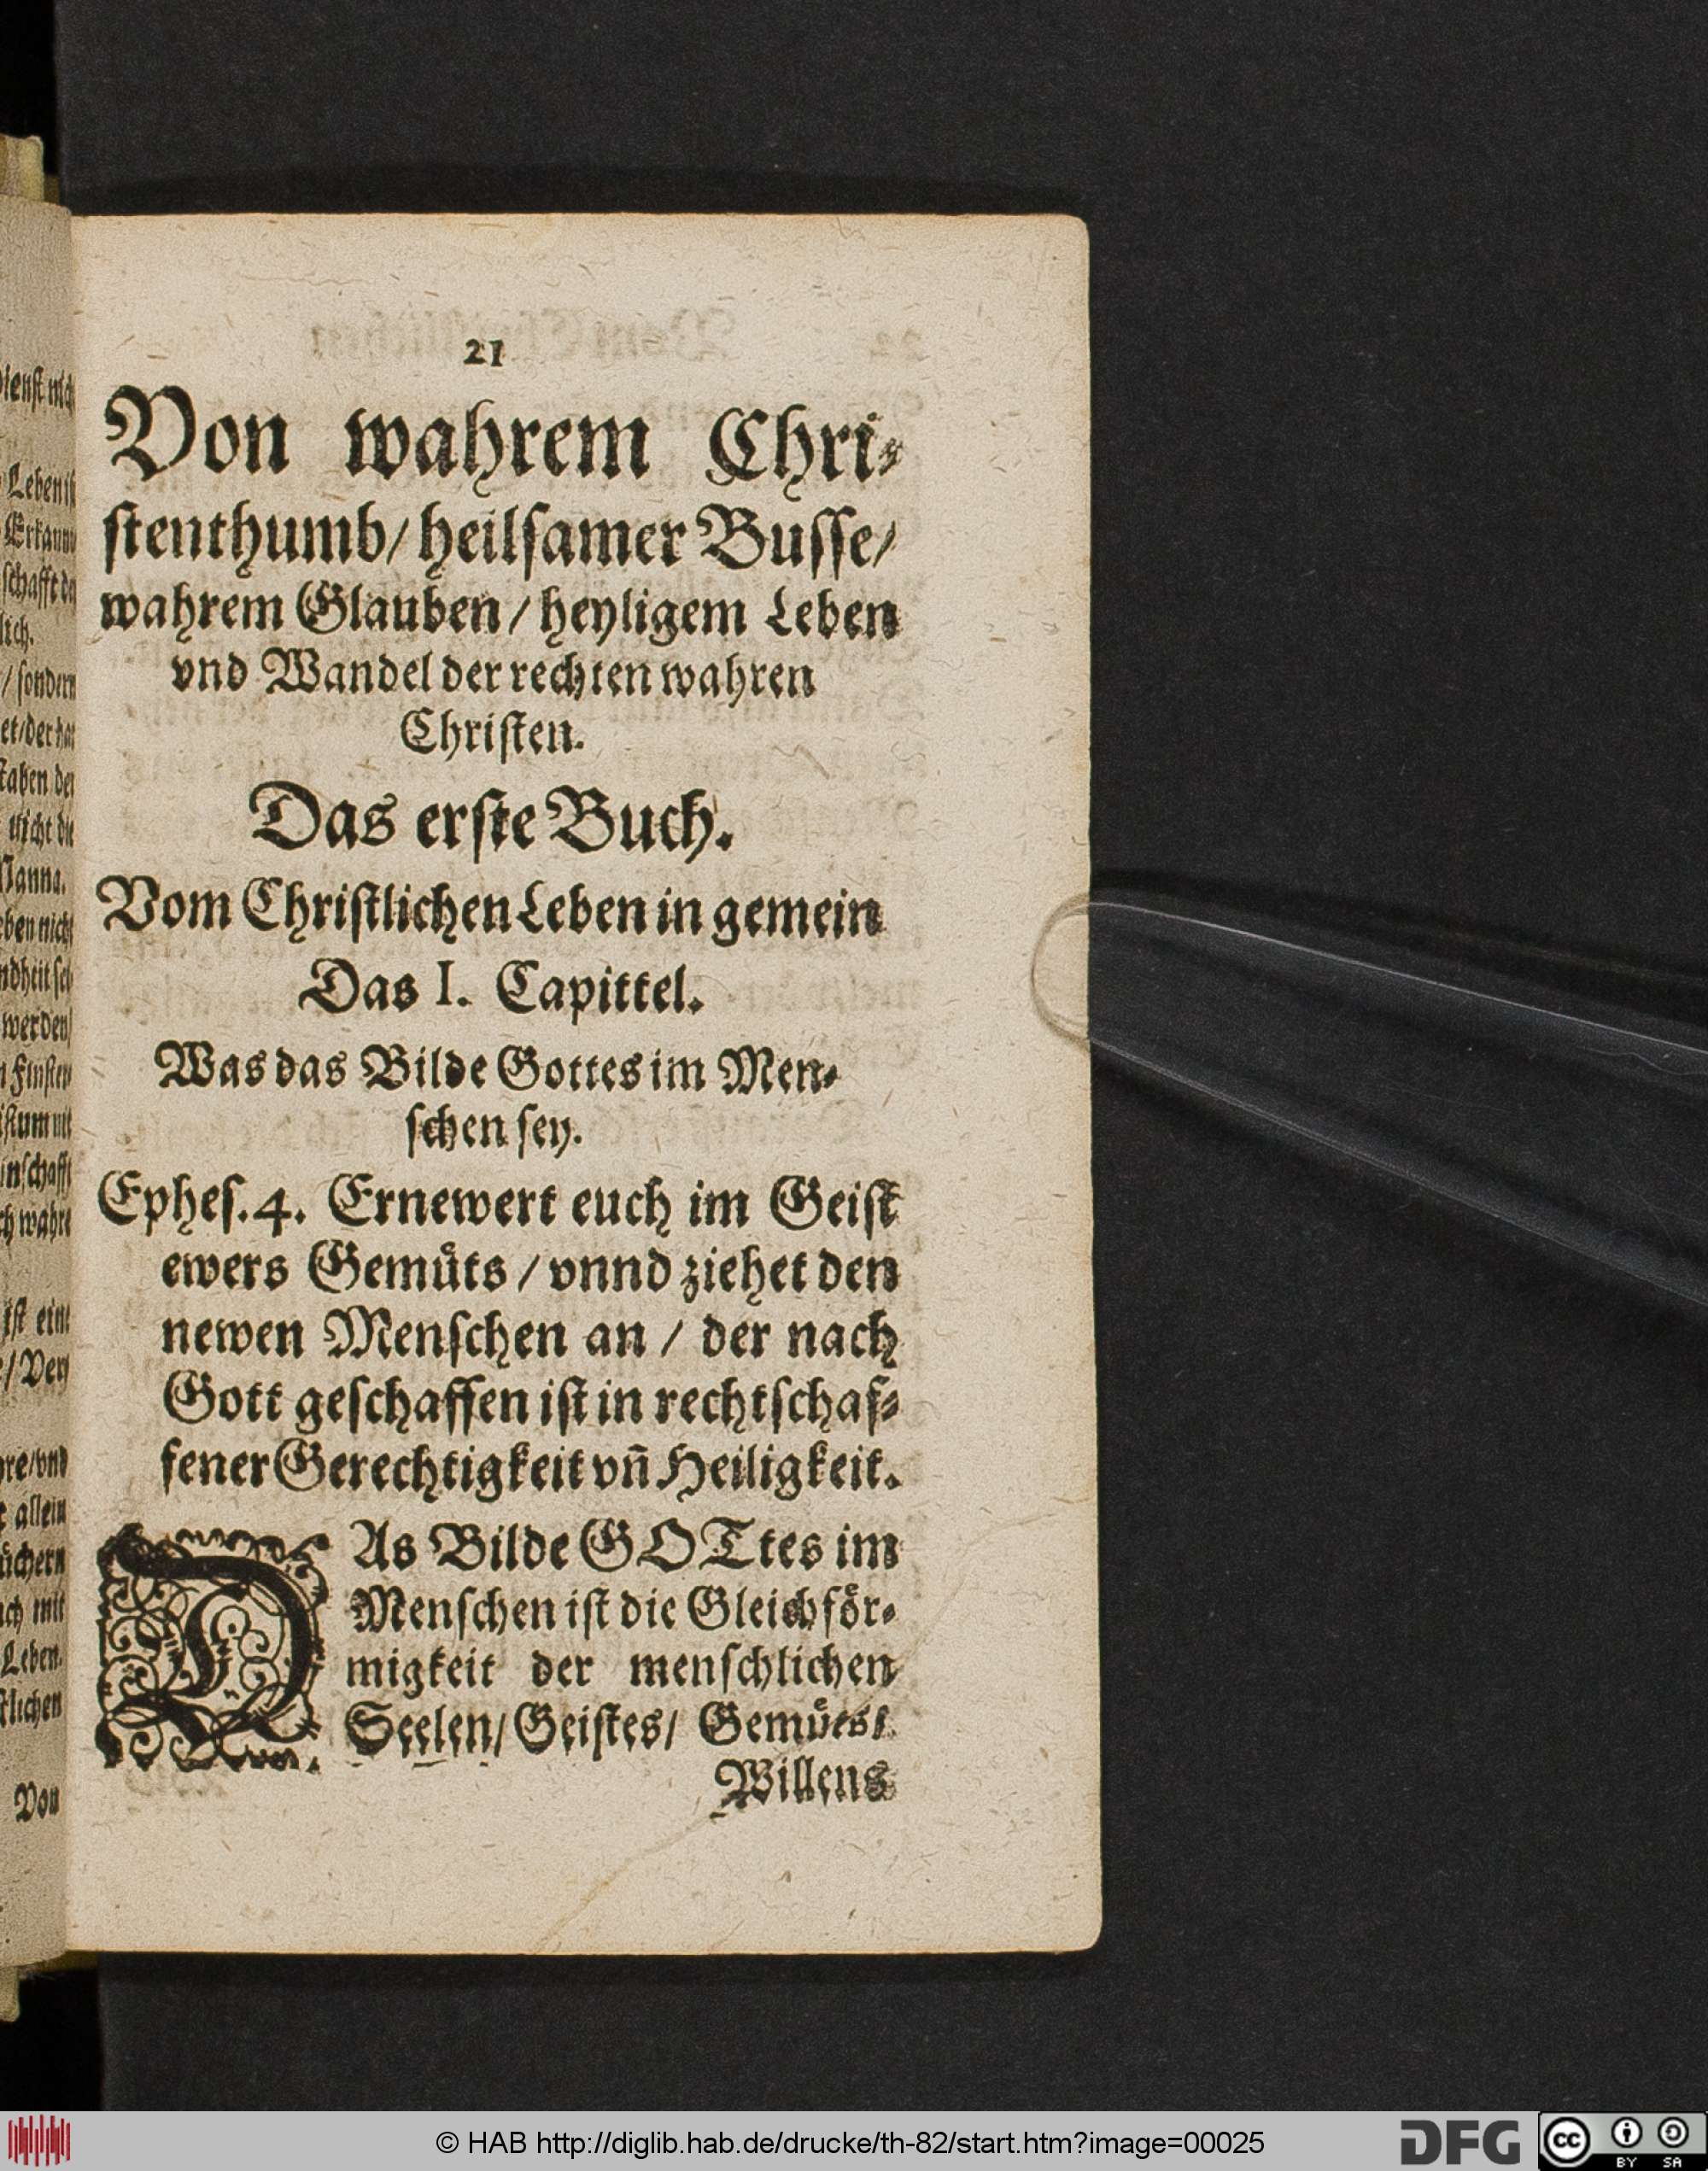 21
Von wahrem Chri⸗
ſtenthumb/ heilſamer Buſſe/
wahrem Glauben / heyligem Leben
vnd Wandel der rechten wahren
Chriſten.
Das erſte Buch.
Vom Chriſtlichen Leben in gemein
Das I. Capittel.
Was das Bilde Gottes im Men⸗
ſchen ſey.
Epheſ. 4. Ernewert euch im Geiſt
ewers Gemuͤts / vnnd ziehet den
newen Menſchen an / der nach
Gott geſchaffen iſt in rechtſchaf⸗
fener Gerechtigkeit vn̄ Heiligkeit.
DAs Bilde GOTtes im
Menſchen iſt die Gleichfoͤr⸗
migkeit der menſchlichen
Seelen/ Geiſtes/ Gemuͤts/
Willens
Leben
/ ſondern
Manna.
werden/
allein
Leben.
Von
© HAB http://diglib.hab.de/drucke/th-82/start.htm?image=00025
DFG
cc
BY SA